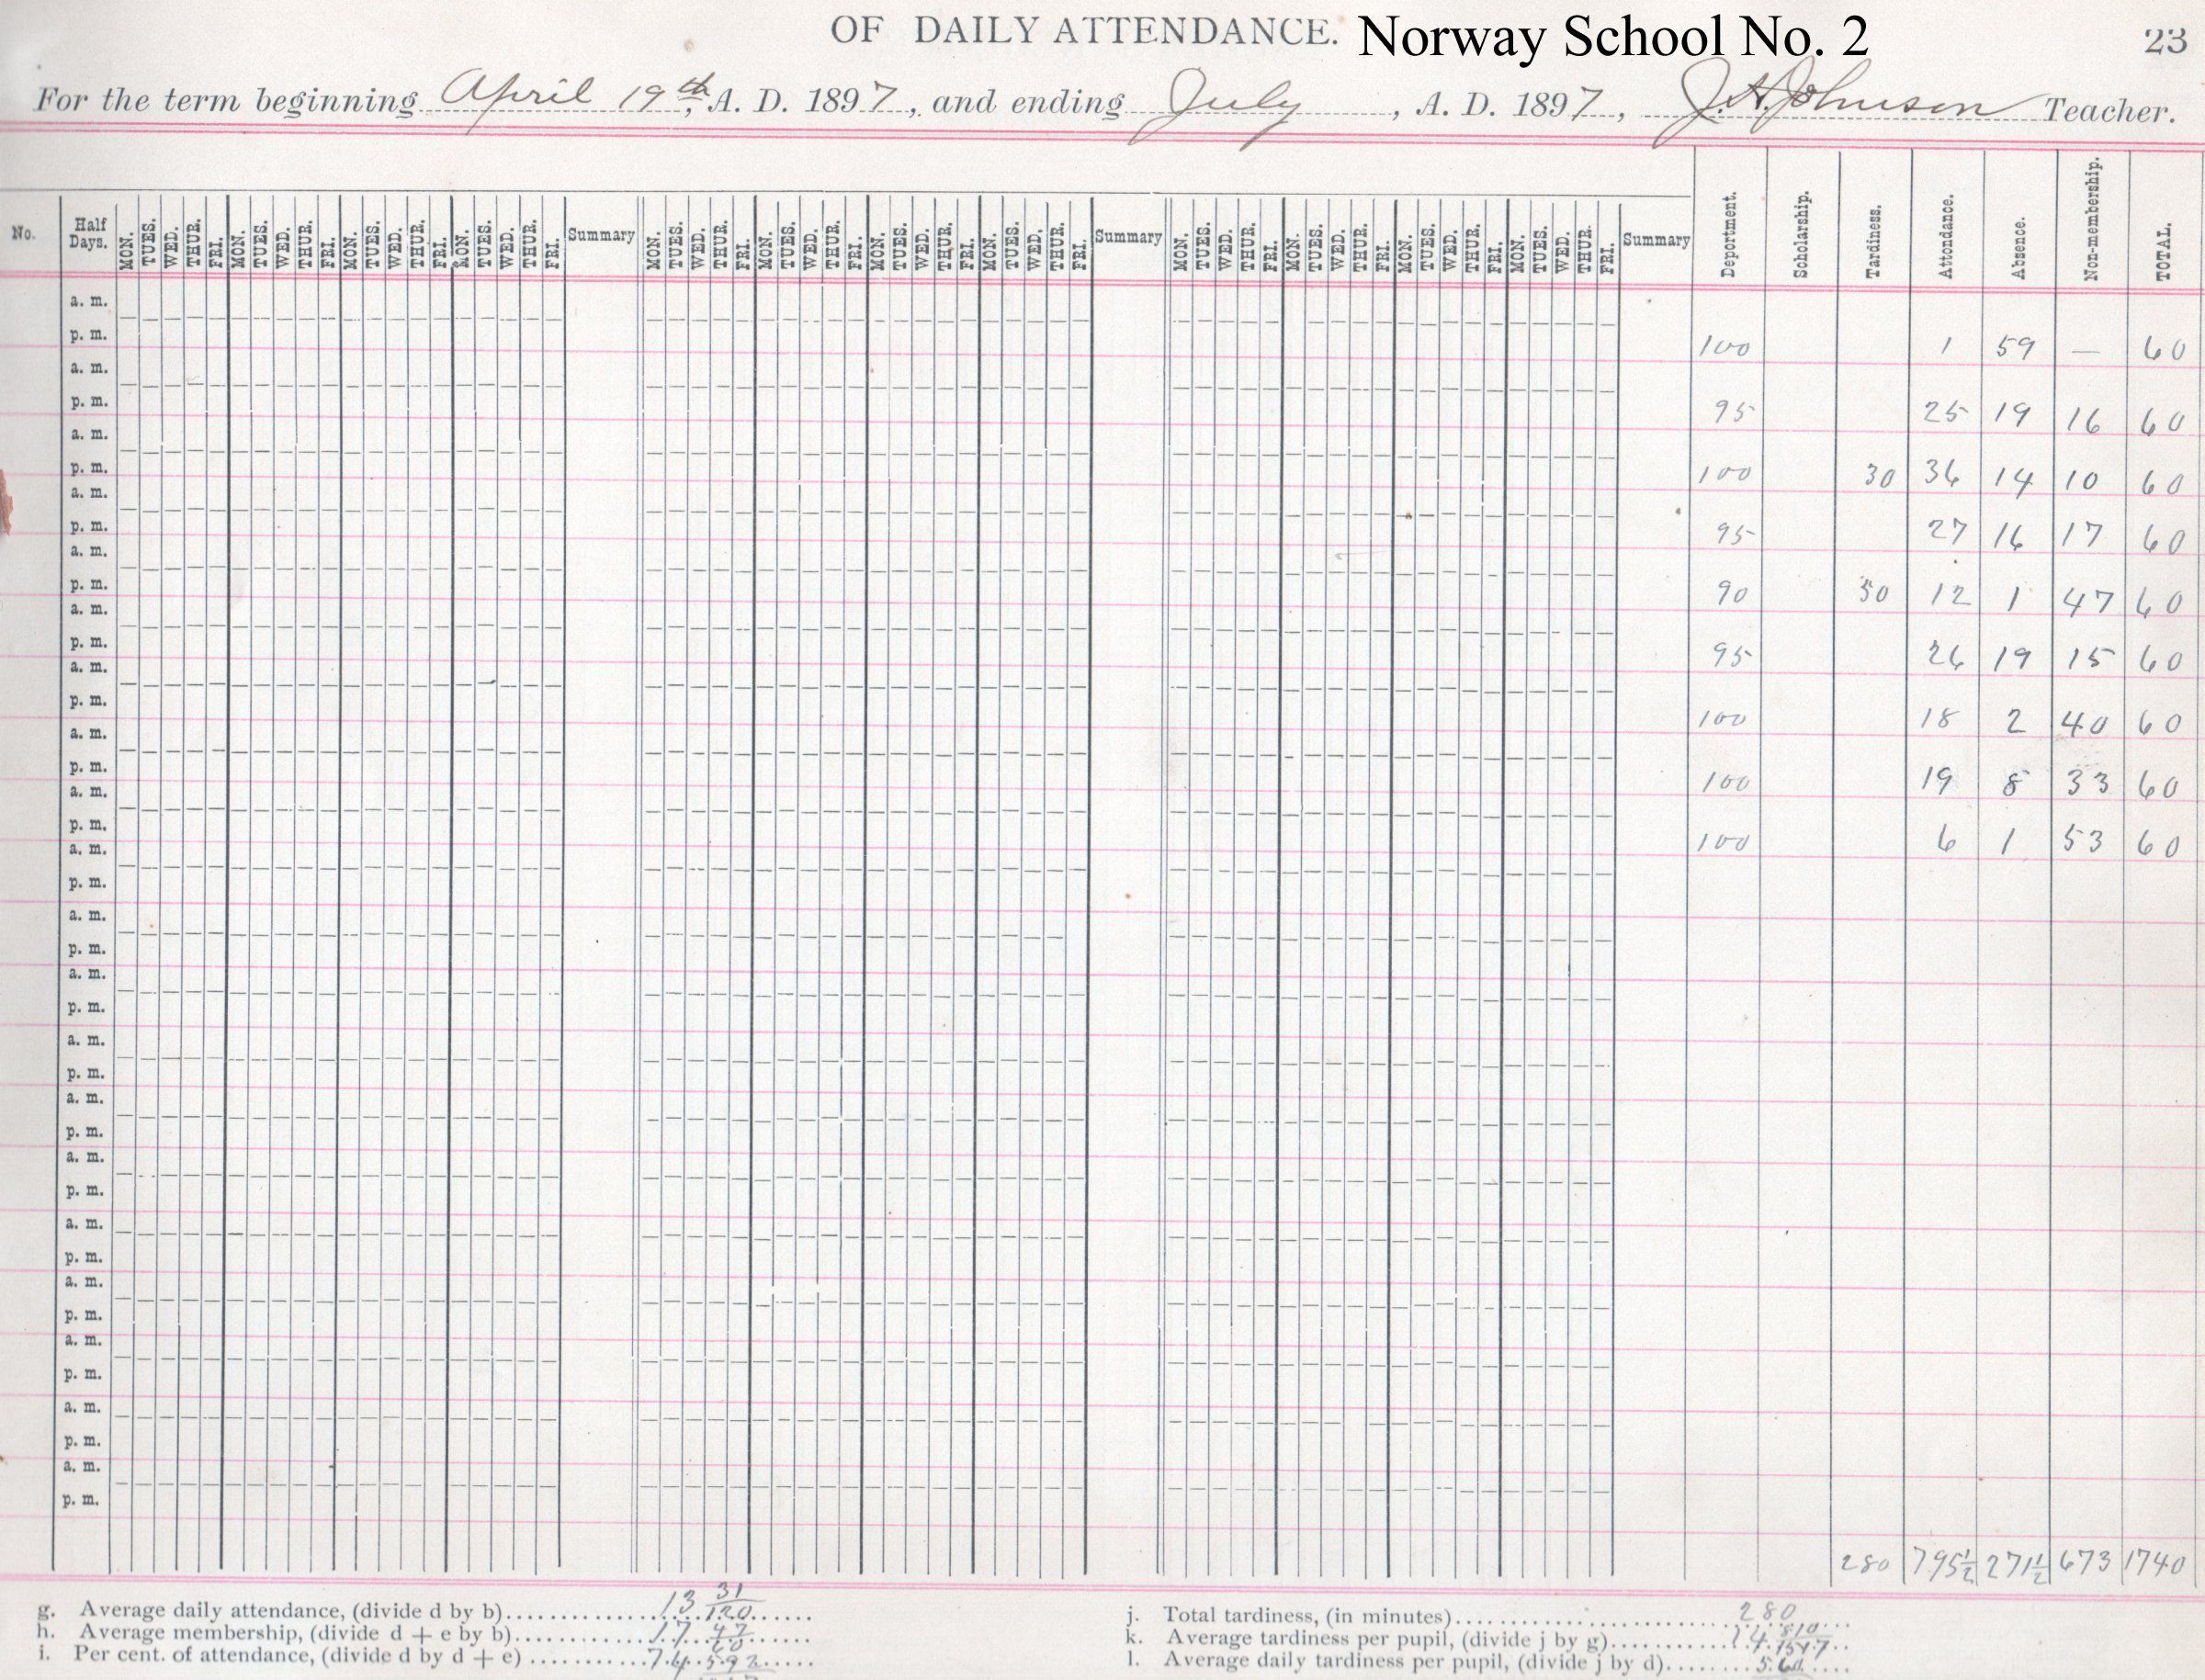 OF DAILY ATTENDANCE. Norway School No. 2 23
For the term beginning April 19th, A. D. 1897, and ending July, A. D. 1897, J. A. Johnson Teacher.
No. Half Days. MON. TUES. WED. THUR. FRI. MON. TUES. WED. THUR. FRI. MON. TUES. WED. THUR. FRI. MON. TUES. WED. THUR. FRI. Summary MON. TUES. WED. THUR. FRI. MON. TUES. WED. THUR. FRI. MON. TUES. WED. THUR. FRI. MON. TUES. WED. THUR. FRI. Summary MON. TUES. WED. THUR. FRI. MON. TUES. WED. THUR. FRI. MON. TUES. WED. THUR. FRI. MON. TUES. WED. THUR. FRI. Summary Deportment. Scholarship. Tardiness. Attendance. Absence. Non-membership. TOTAL.
a. m.
p. m. 100 1 59 — 60
a. m.
p. m. 95 25 19 16 60
a. m.
p. m. 100 30 36 14 10 60
a. m.
p. m. 95 27 16 17 60
a. m.
p. m. 90 50 12 1 47 60
a. m.
p. m. 95 26 19 15 60
a. m.
p. m. 100 18 2 40 60
a. m.
p. m. 100 19 8 33 60
a. m.
p. m. 100 6 1 53 60
a. m.
p. m.
a. m.
p. m.
a. m.
p. m.
a. m.
p. m.
a. m.
p. m.
a. m.
p. m.
a. m.
p. m.
a. m.
p. m.
a. m.
p. m.
a. m.
p. m.
a. m.
p. m.
280 795½ 271½ 673 1740
g. Average daily attendance, (divide d by b) 13 31/120
h. Average membership, (divide d + e by b) 17 47/60
i. Per cent. of attendance, (divide d by d + e)
j. Total tardiness, (in minutes) 280
k. Average tardiness per pupil, (divide j by g)
l. Average daily tardiness per pupil, (divide j by d)